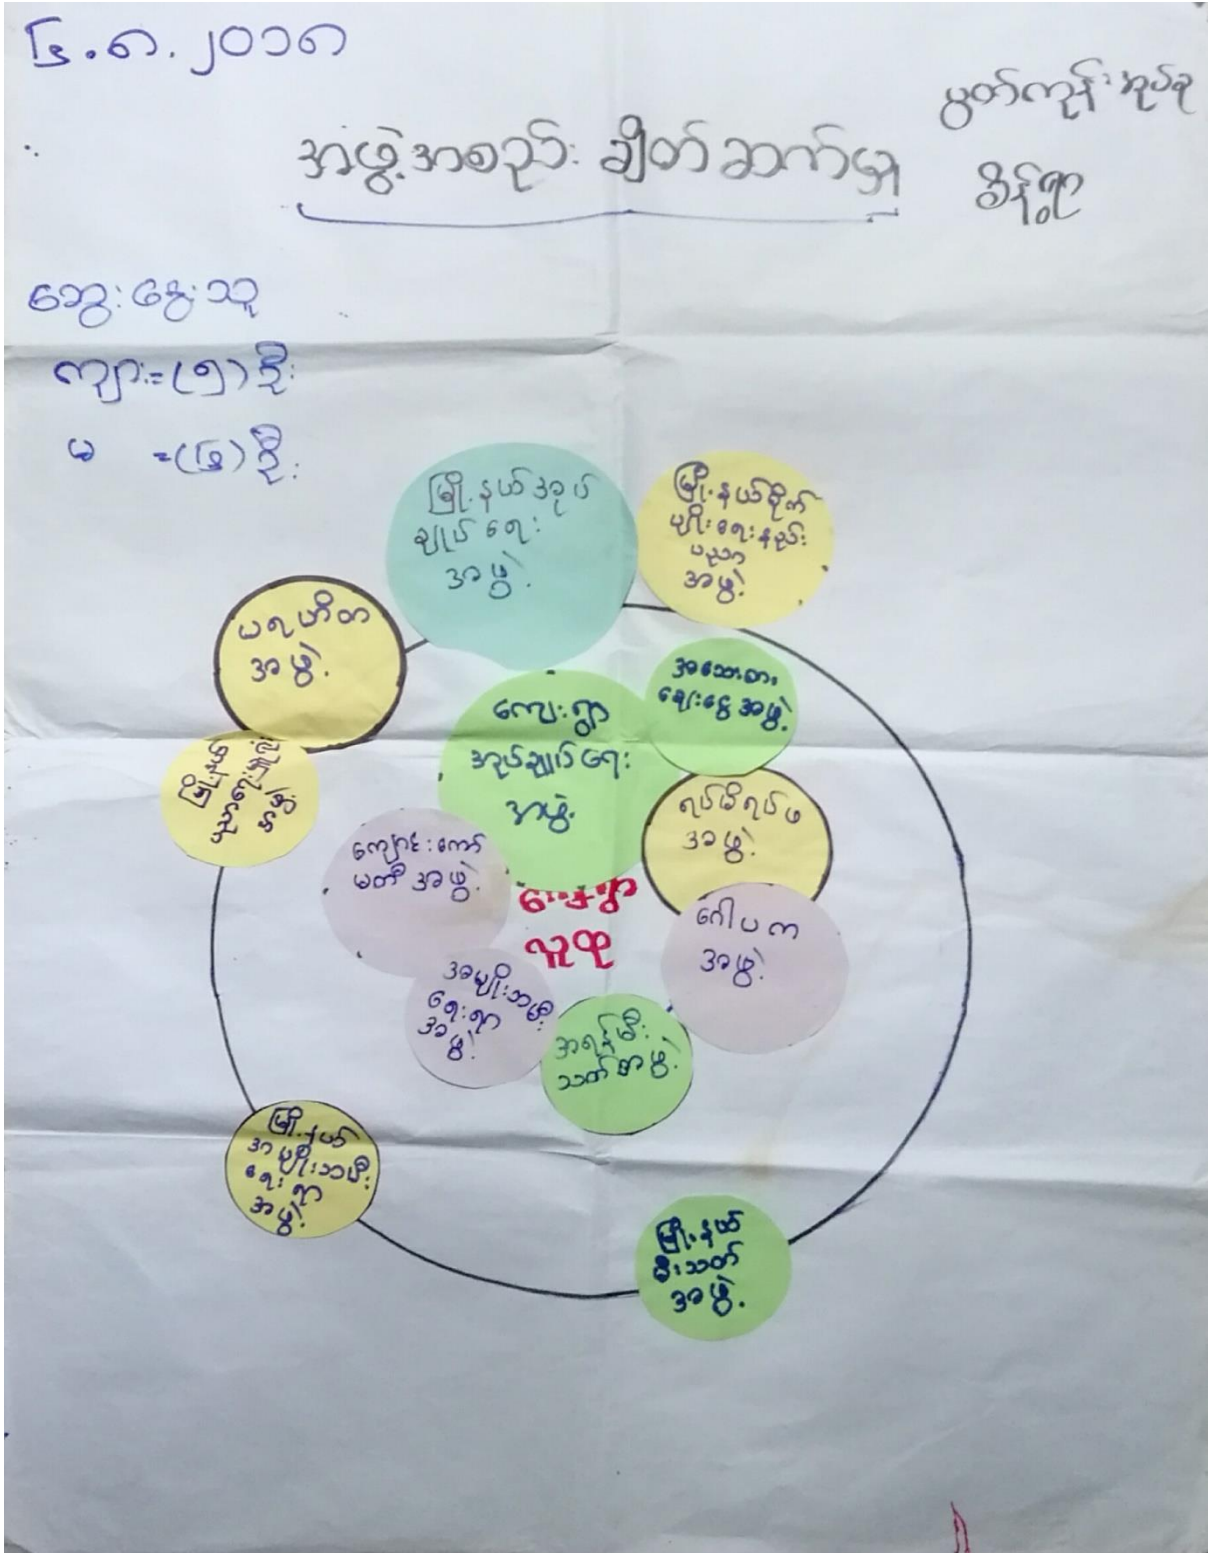 ၆.၈.၂၀၁၈
မွတ်ကုန်းအုပ်စု
အဖွဲ့အစည်း ချိတ်ဆက်မှု
စိန့်ရွာ
ဆွေးနွေးသူ
ကျား=(၅)ဦး
မ =(၆)ဦး
မြို့နယ်အုပ်
ချုပ်ရေး
အဖွဲ့
မြို့နယ်စိုက်
ပျိုးရေးနည်း
ပညာ
အဖွဲ့
ပရဟိတ
အဖွဲ့
အသေးစား
ချေးငွေအဖွဲ့
ကျေးရွာ
အုပ်ချုပ်ရေး
အဖွဲ့
ရပ်မိရပ်ဖ
အဖွဲ့
ကျောင်းကော်
မတီအဖွဲ့
ကျေးရွာ
လူထု
ဂေါပက
အဖွဲ့
အမျိုးသမီး
ရေးရာ
အဖွဲ့
အရန်မီး
သတ်အဖွဲ့
မြို့နယ်
အမျိုးသမီး
ရေးရာ
အဖွဲ့
မြို့နယ်
မီးသတ်
အဖွဲ့